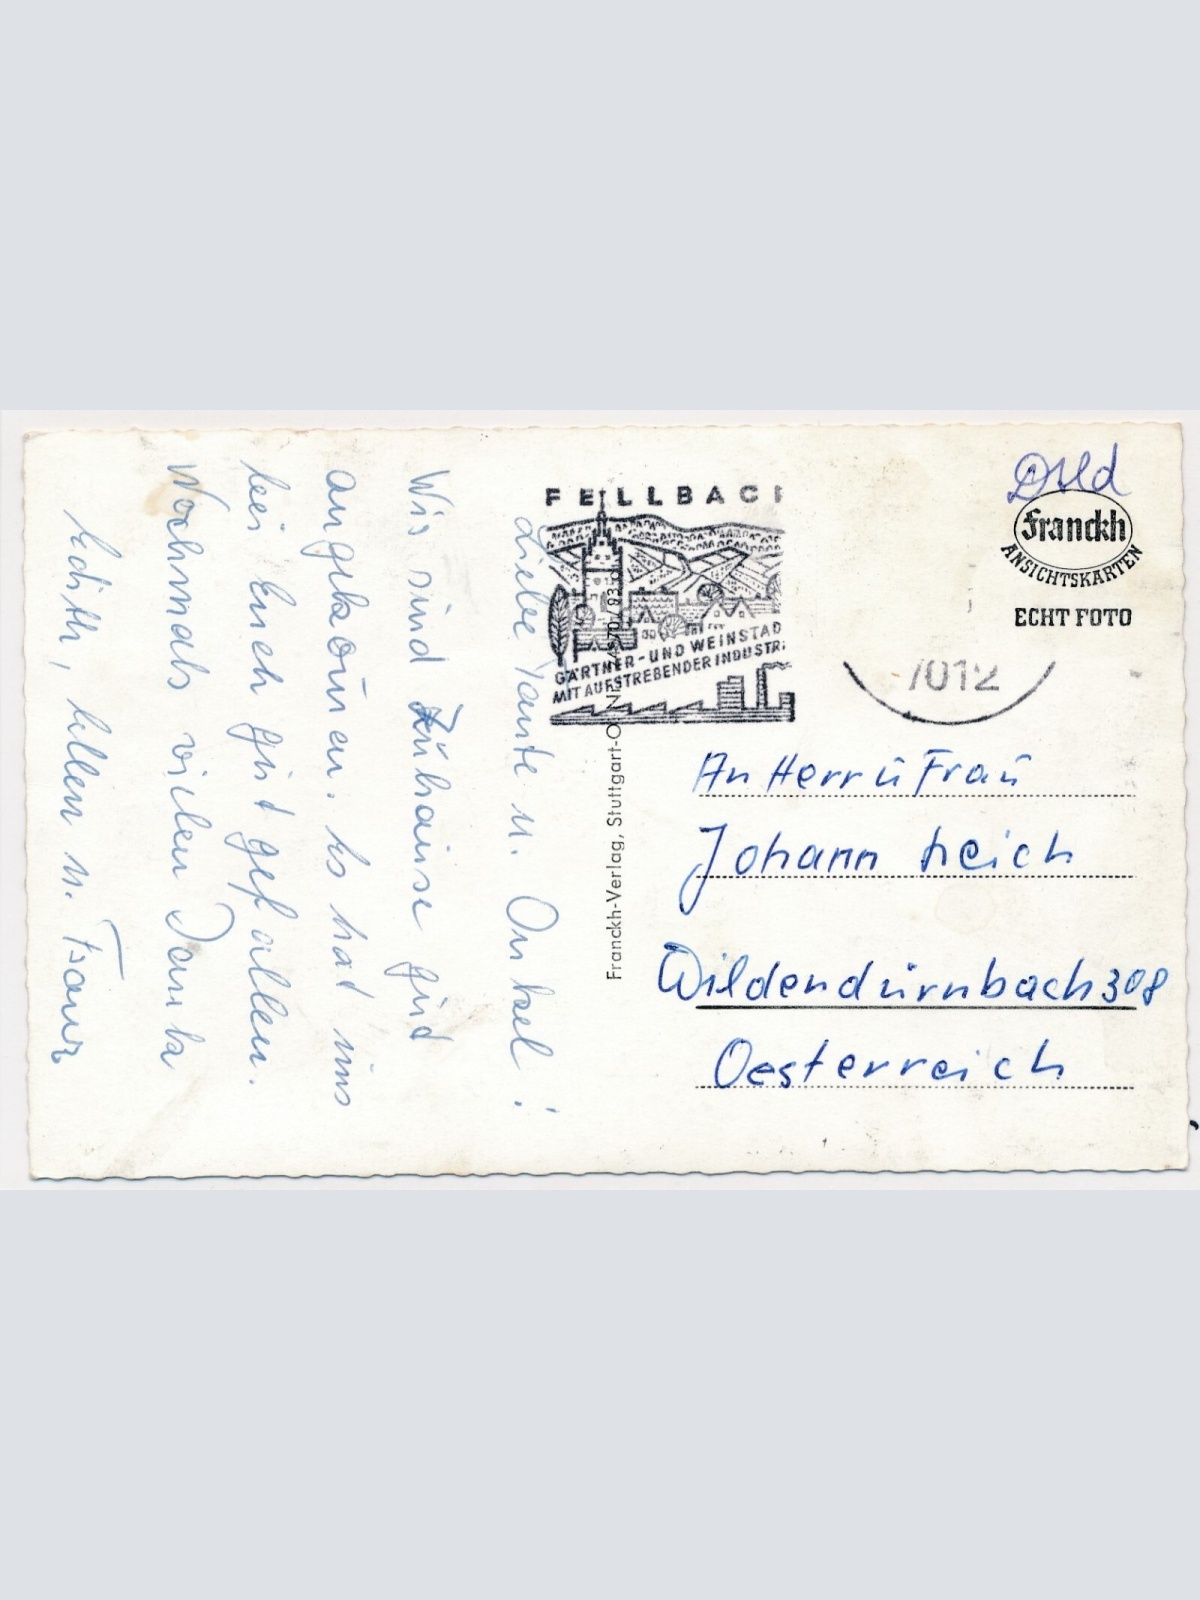 Liebe Tante u. Onkel!
Wir sind Zuhause gut
angekom̄en. Es hat uns
bei Euch gut gefallen.
Nochmals vielen Dank
Edith, Ellen u. Franz
FELLBAC
GÄRTNER- UND WEINSTAD
MIT AUFSTREBENDER INDUSTRI
Franckh-Verlag, Stuttgart-O
Dtld
Franckh
ANSICHTSKARTEN
ECHT FOTO
7012
An Herr u Frau
Johann Reich
Wildendürnbach 308
Oesterreich